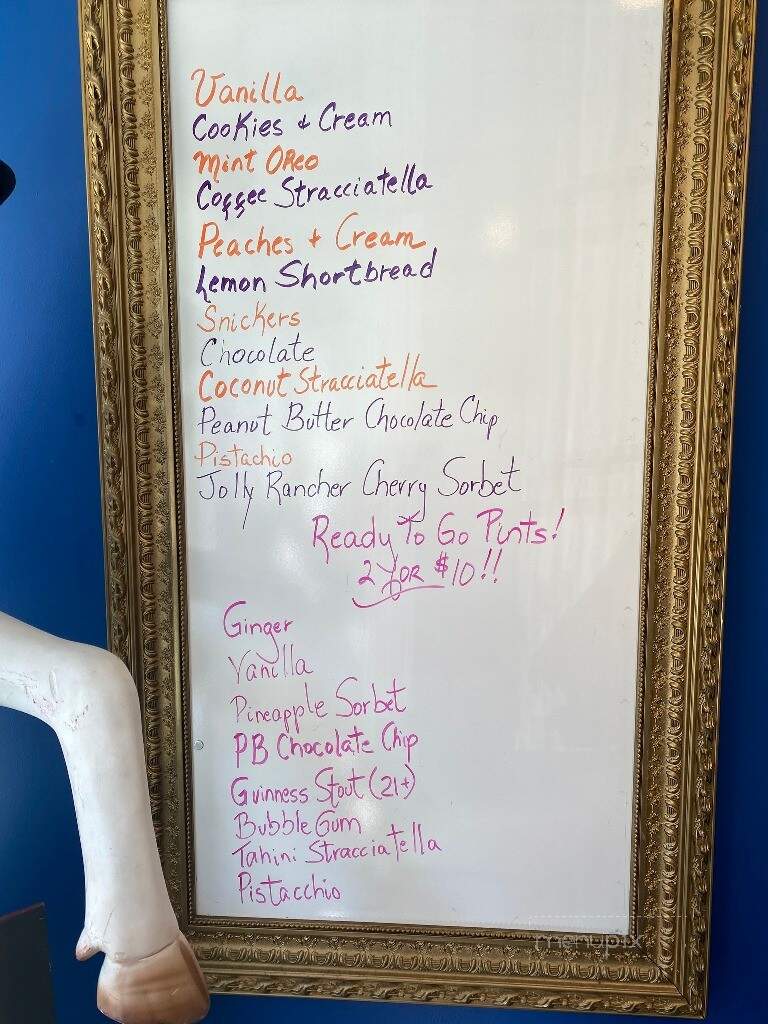 Vanilla
Cookies + Cream
Mint Oreo
Coffee Stracciatella
Peaches + Cream
Lemon Shortbread
Snickers
Chocolate
Coconut Stracciatella
Peanut Butter Chocolate Chip
Pistachio
Jolly Rancher Cherry Sorbet
Ready To Go Pints!
2 for $10!!
Ginger
Vanilla
Pineapple Sorbet
PB Chocolate Chip
Guinness Stout (21+)
Bubble Gum
Tahini Stracciatella
Pistacchio
menupix